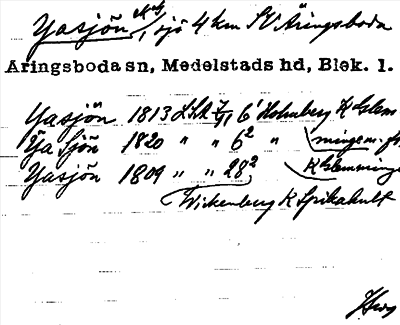 Yasjön, sjö 4 km SV Åringsboda
Åringsboda sn, Medelstads hd, Blek. l.
Yasjön 1813 LSA 6¹ Holmberg K Glem
Ya Sjön 1820 " " 6² " minge m. fl.
Yasjön 1809 " " 28² K Glemminge
Wickenberg K Spikahult